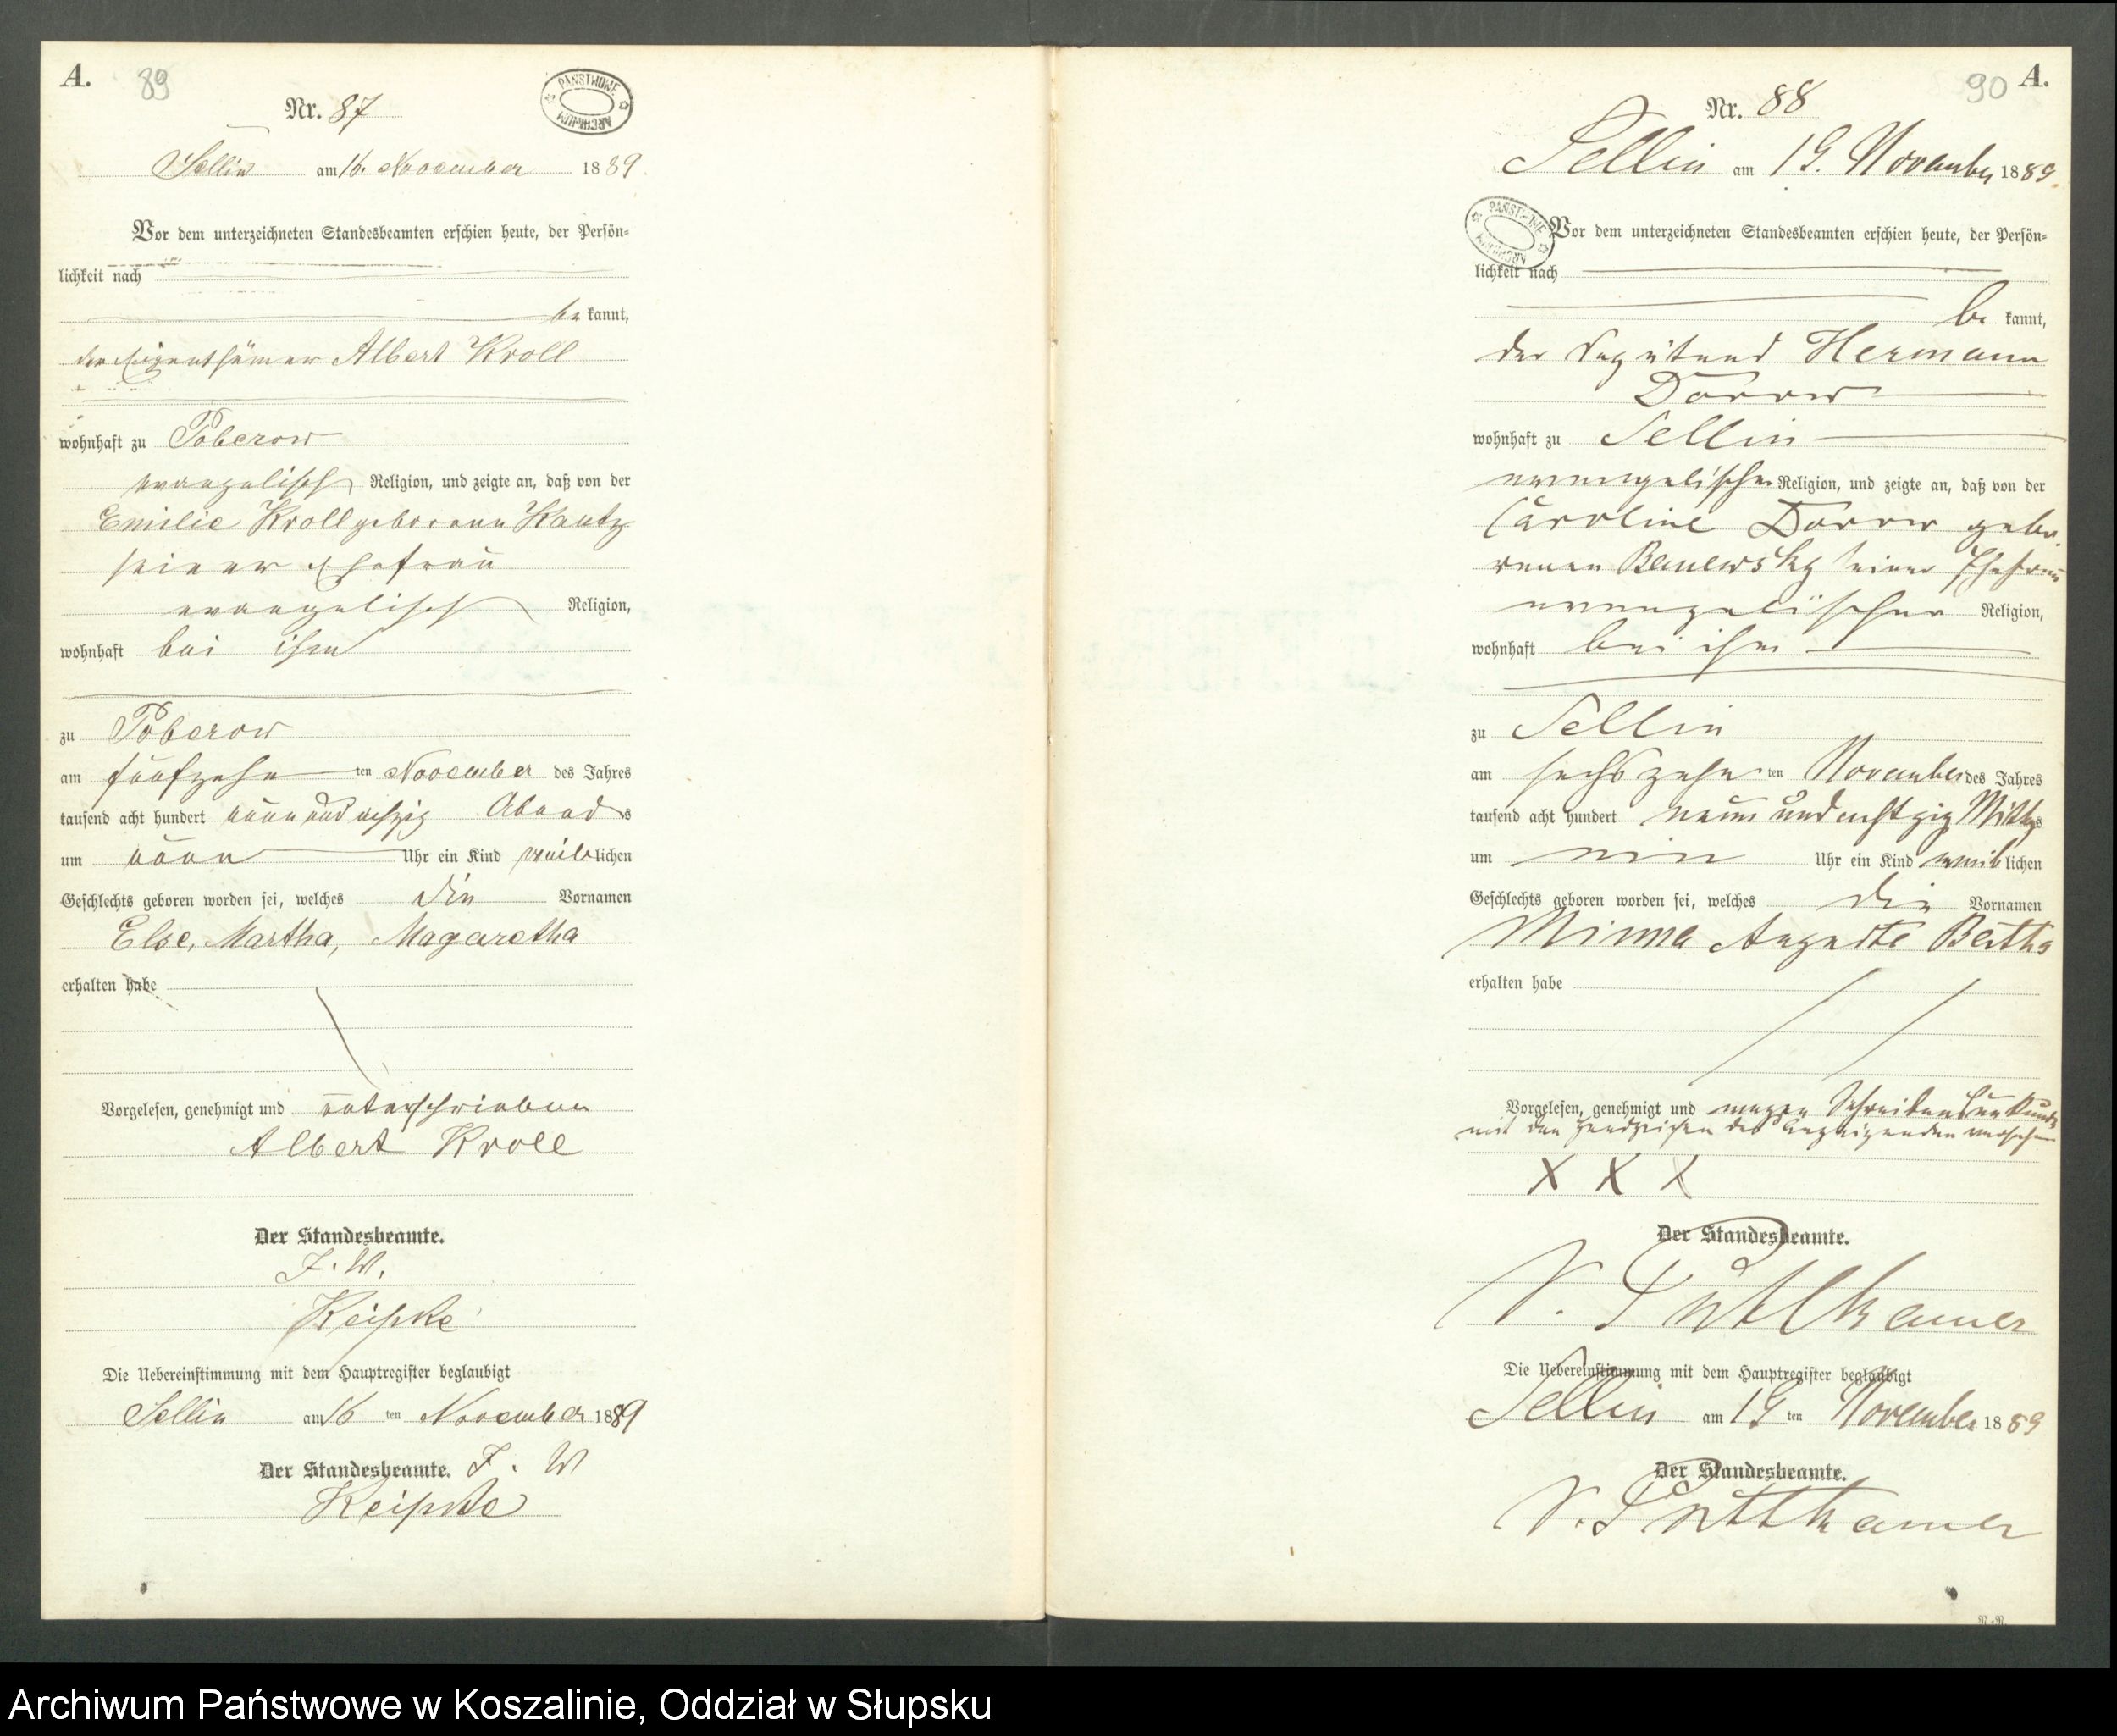 A.
89
Nr. 87
PAŃSTWOWE ARCHIWUM
Sellin am 16. November 1889.
Vor dem unterzeichneten Standesbeamten erschien heute, der Persön-
lichkeit nach
be kannt,
der Eigenthümer Albert Kroll
wohnhaft zu Poberow
evangelisch Religion, und zeigte an, daß von der
Emilie Kroll geborenen Kautz
seiner Ehefrau
evangelisch Religion,
wohnhaft bei ihm
zu Poberow
am fünfzehn ten November des Jahres
tausend acht hundert neun und achzig Abends
um neun Uhr ein Kind weiblichen
Geschlechts geboren worden sei, welches die Vornamen
Else, Martha, Magaretha
erhalten habe
Vorgelesen, genehmigt und unterschrieben
Albert Kroll
Der Standesbeamte.
I. W.
Keipke
Die Uebereinstimmung mit dem Hauptregister beglaubigt
Sellin am 16 ten November 1889
Der Standesbeamte. I. W
Keipke
90 A.
Nr. 88
Sellin am 19. November 1889.
PAŃSTWOWE ARCHIWUM
Vor dem unterzeichneten Standesbeamten erschien heute, der Persön-
lichkeit nach
be kannt,
der Hermann
Dorow
wohnhaft zu Sellin
evangelischer Religion, und zeigte an, daß von der
Caroline Dorow gebo-
renen seiner Ehefrau
evangelischer Religion,
wohnhaft bei ihm
zu Sellin
am sechszehn ten November des Jahres
tausend acht hundert neun und achtzig Mittags
um ein Uhr ein Kind weiblichen
Geschlechts geboren worden sei, welches die Vornamen
Minna Auguste Bertha
erhalten habe
Vorgelesen, genehmigt und wegen Schreibensunkunde
mit den Handzeichen des Anzeigenden versehen
X X X
Der Standesbeamte.
v. Puttkamer
Die Uebereinstimmung mit dem Hauptregister beglaubigt
Sellin am 19 ten November 1889
Der Standesbeamte.
v. Puttkamer
Archiwum Państwowe w Koszalinie, Oddział w Słupsku